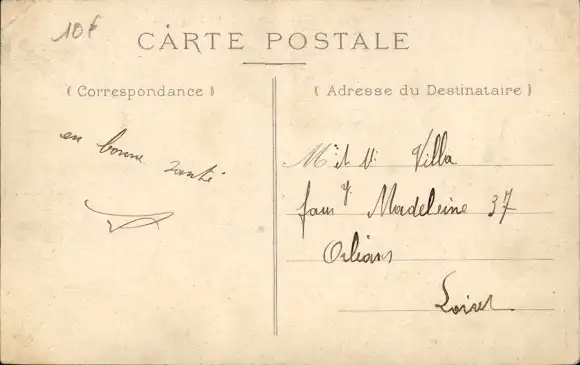 10f
CARTE POSTALE
( Correspondance )
en bonne santé
( Adresse du Destinataire )
Villa
faur g Madeleine 37
Orléans
Loiret